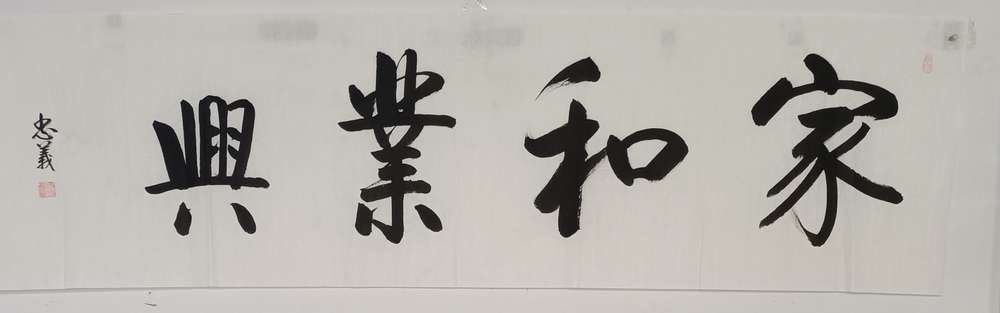 家和業興
忠義